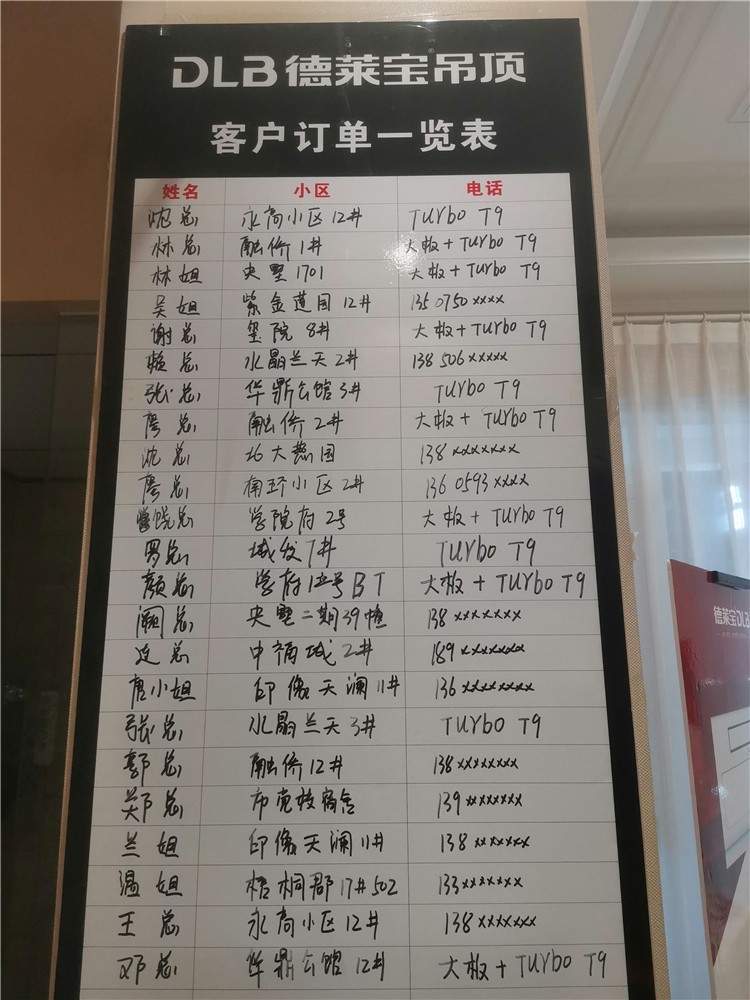 DLB德莱宝吊顶
客户订单一览表
姓名 小区 电话
沈总 永尚小区12# TUrbo T9
林总 融侨1# 大板+TUrbo T9
林姐 央墅1701 大板+TUrbo T9
吴姐 紫金莲园12# 1350750××××
谢总 玺院8# 大板+TUrbo T9
赖总 水晶兰天2# 138506×××××
张总 华鼎公馆3# TUrbo T9
廖总 融侨2# 大板+TUrbo T9
沈总 北大慧园 138××××××××
廖总 小区2# 1360593××××
总 学院府2号 大板+TUrbo T9
罗总 城发7# TUrbo T9
颜总 学府 号BT 大板+TUrbo T9
阙总 央墅二期39幢 138××××××××
连总 中福城2# 189××××××××
唐小姐 印像天澜11# 136××××××××
张总 水晶兰天3# TUrbo T9
郭总 融侨12# 138××××××××
郑总 宿舍 139××××××××
兰姐 印像天澜11# 138×××××××
温姐 梧桐郡17#502 133×××××××
王总 永尚小区12# 138××××××××
邓总 华鼎公馆12# 大板+TUrbo T9
德莱宝DLB